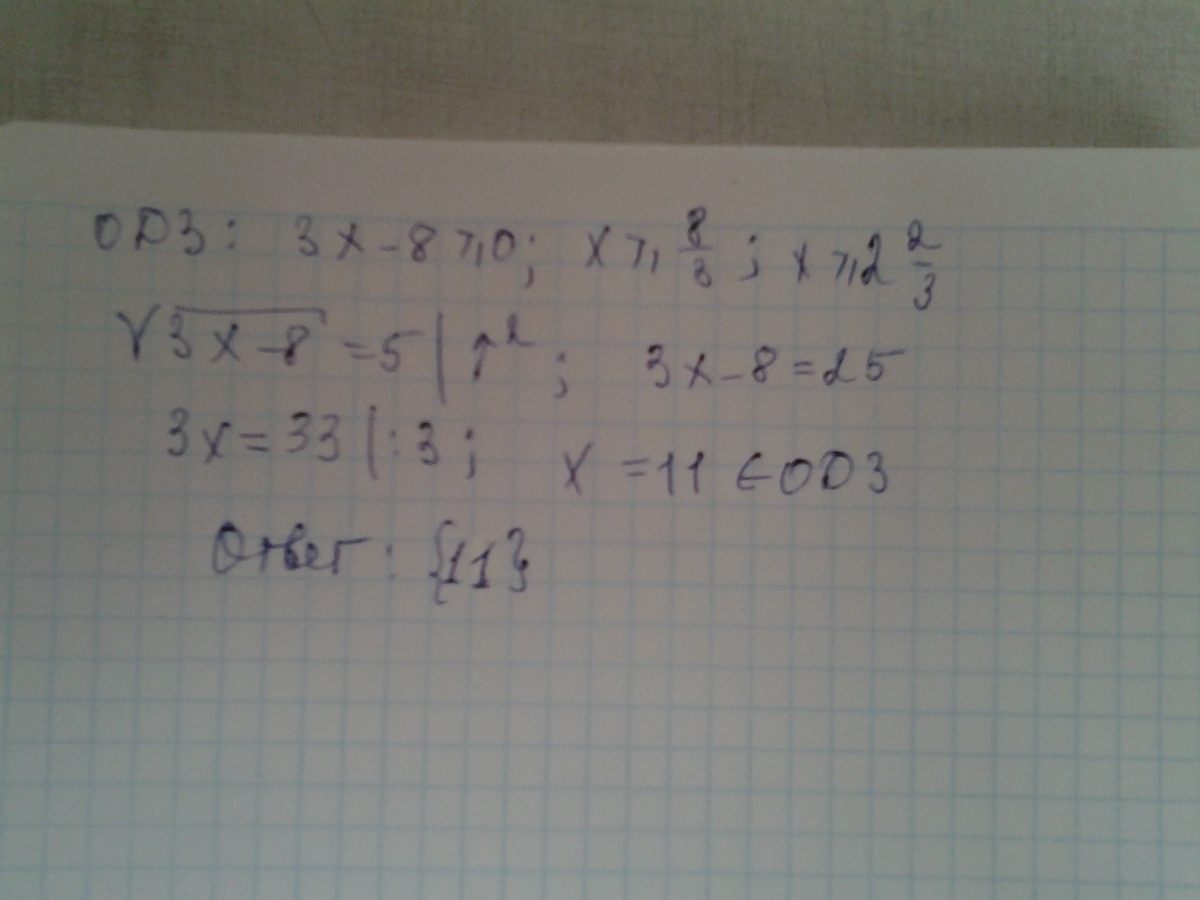 ОДЗ: 3x-8⩾0; x⩾8/3; x⩾2 2/3
√3x-8 =5 | ↑²; 3x-8=25
3x=33 |:3; x=11 ∈ОДЗ
Ответ: {11}